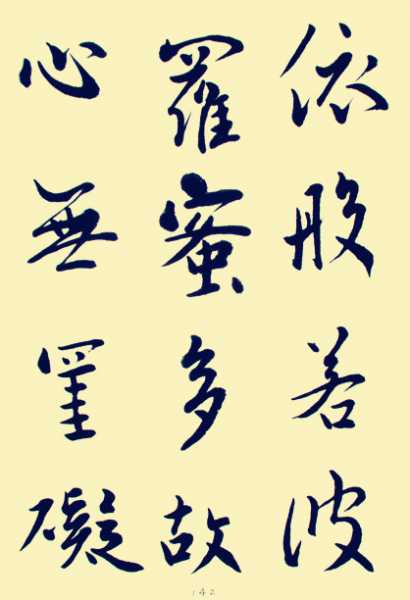 依般若波
羅蜜多故
心無罣礙
142